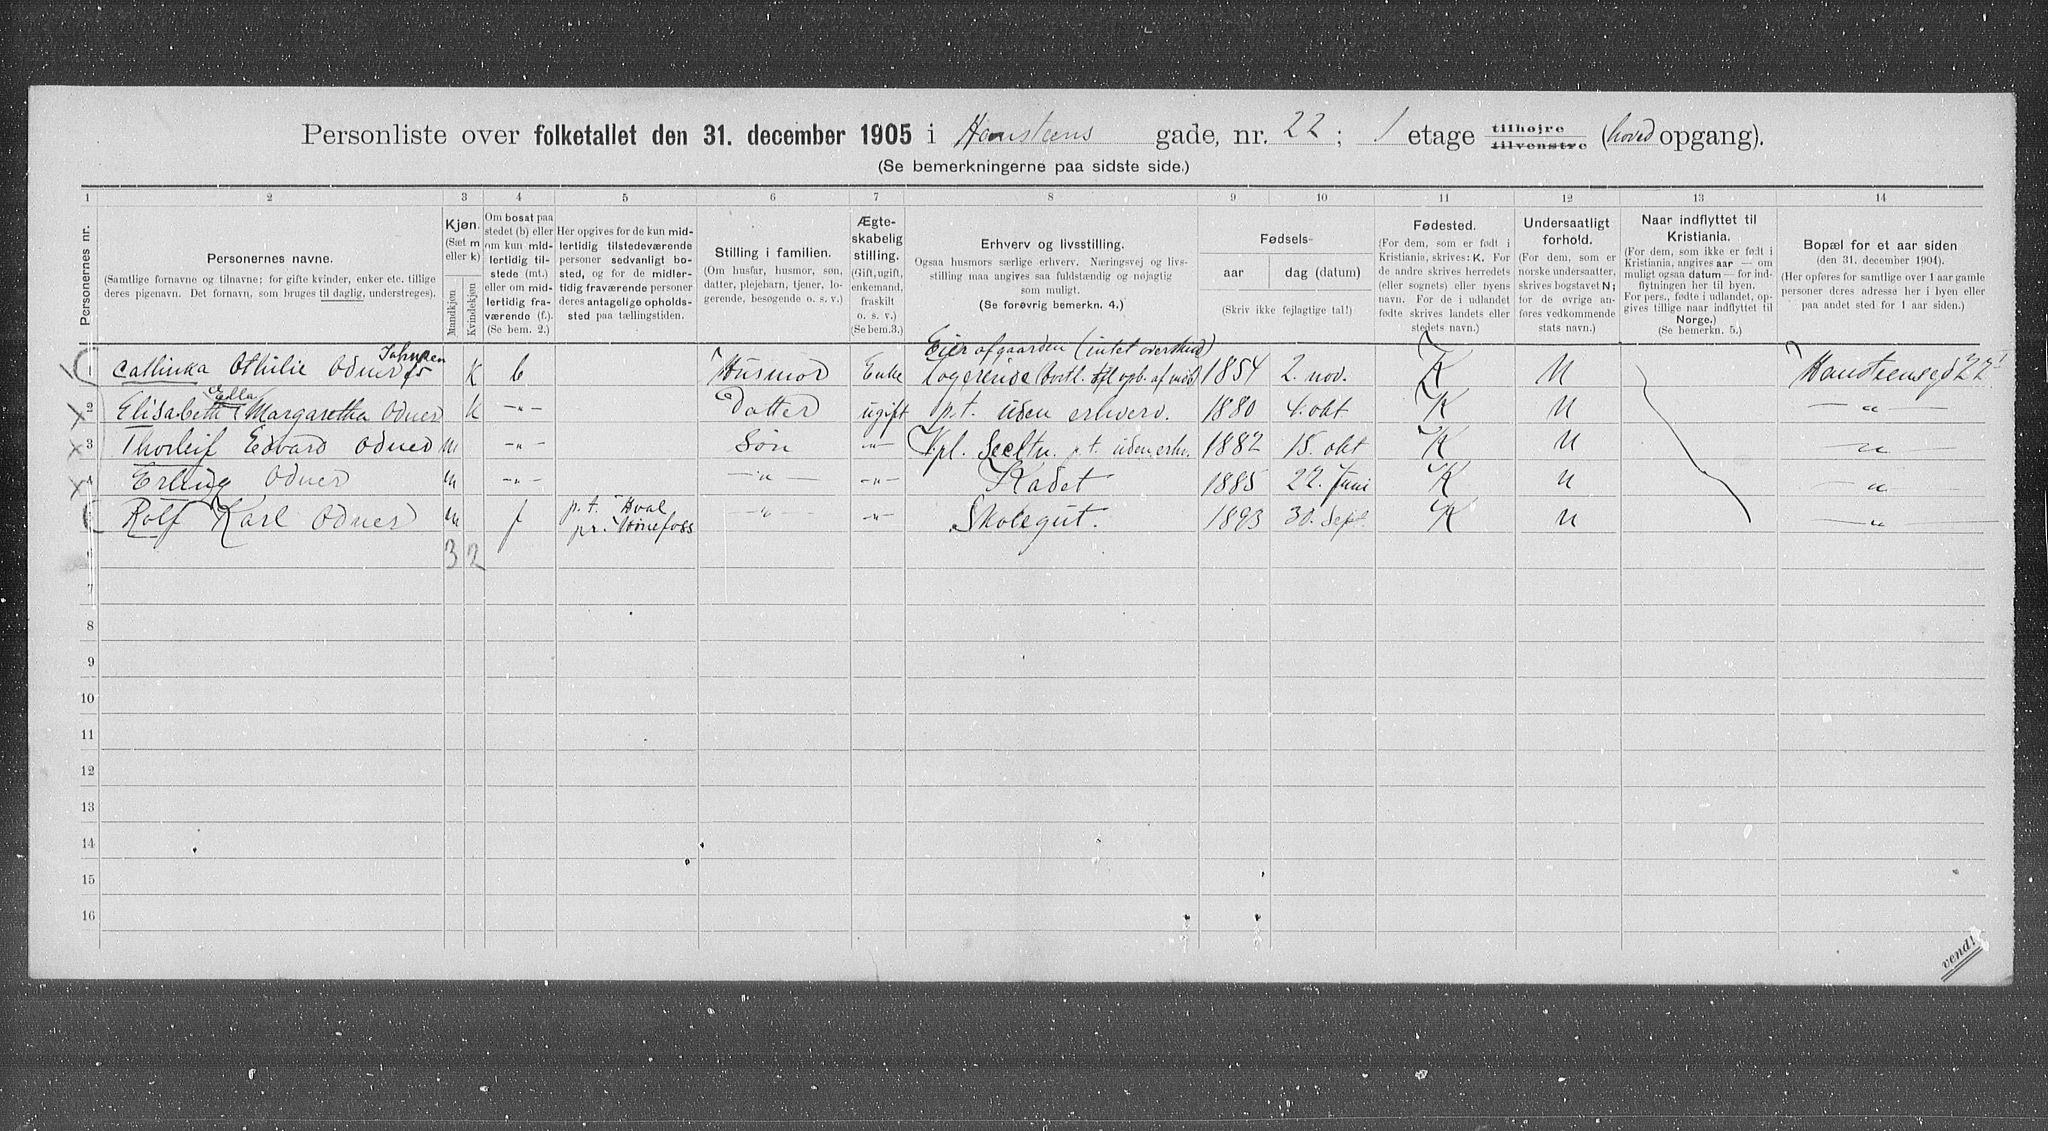 Personliste over folketallet den 31. december 1905 i Hansteens gade, nr. 22; 1 etage tilhøjre tilvenstre (hoved opgang).
(Se bemerkningerne paa sidste side.)
1 2 3 4 5 6 7 8 9 10 11 12 13 14
Personernes nr.
Personernes navne.
(Samtlige fornavne og tilnavne; for gifte kvinder, enker etc. tillige deres pigenavn. Det fornavn, som bruges til daglig, understreges).
Kjøn.
(Sæt m eller k)
Mandkjøn
Kvindekjøn
Om bosat paa stedet (b) eller om kun midlertidig tilstede (mt.) eller om midlertidig fraværende (f.). (Se bem. 2.)
Her opgives for de kun midlertidig tilstedeværende personer sedvanligt bosted, og for de midlertidig fraværende personer deres antagelige opholdssted paa tællingstiden.
Stilling i familien.
(Om husfar, husmor, søn, datter, plejebarn, tjener, logerende, besøgende o. s. v.)
Ægteskabelig stilling.
(Gift, ugift, enkemand, fraskilt o. s. v.)
(Se bem.3.)
Erhverv og livsstilling.
Ogsaa husmors særlige erhverv. Næringsvej og livsstilling maa angives saa fuldstændig og nøjagtig som muligt.
(Se forøvrig bemerkn. 4.)
Fødsels-
aar
dag (datum)
(Skriv ikke fejlagtige tal!)
Fødested.
(For dem, som er født i Kristiania, skrives: K. For de andre skrives herredets (eller sognets) eller byens navn. For de i udlandet fødte skrives landets eller stedets navn.)
Undersaatligt forhold.
(For dem, som er norske undersaatter, skrives bogstavet N; for de øvrige anføres vedkommende stats navn.)
Naar indflyttet til Kristiania.
(For dem, som ikke er født i Kristiania, angives aar — om muligt ogsaa datum — for indflytningen her til byen. For pers., fødte i udlandet, opgives tillige naar indflyttet til Norge.)
(Se bemerkn. 5.)
Bopæl for et aar siden
(den 31. december 1904).
(Her opføres for samtlige over 1 aar gamle personer deres adresse her i byen eller paa andet sted for 1 aar siden.)
1 Cathinka Othilie Odner fs Jahnsen K b Husmor Enke Eier af gaarden (intet overskud) Logerende 1854 2. nov. K N Hansteensgd 22 I
2 Elisabeth Edla Margaretha Odner K —"— Datter ugift p.t. uden erhverv. 1880 4. okt K N —"—
3 Thorleif Edvard Odner m —"— Søn —"— p.t. uden erhv. 1882 15. okt K N —"—
4 Erling Odner m —"— —"— —"— Kadet 1885 22. Juni K N —"—
5 Rolf Karl Odner m f p.t. Hval pr. Hønefoss —"— —"— Skolegut. 1893 30. Sept. K N —"—
3 2
7
8
9
10
11
12
13
14
15
16
vend!